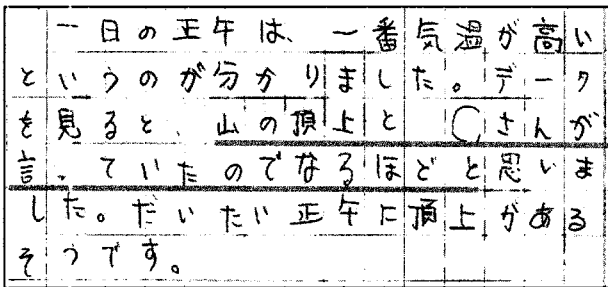 一日の正午は、一番気温が高い
というのが分かりました。データ
を見ると、山の頂上と Cさんが
言っていたのでなるほどと思いま
した。だいたい正午に頂上がある
そうです。